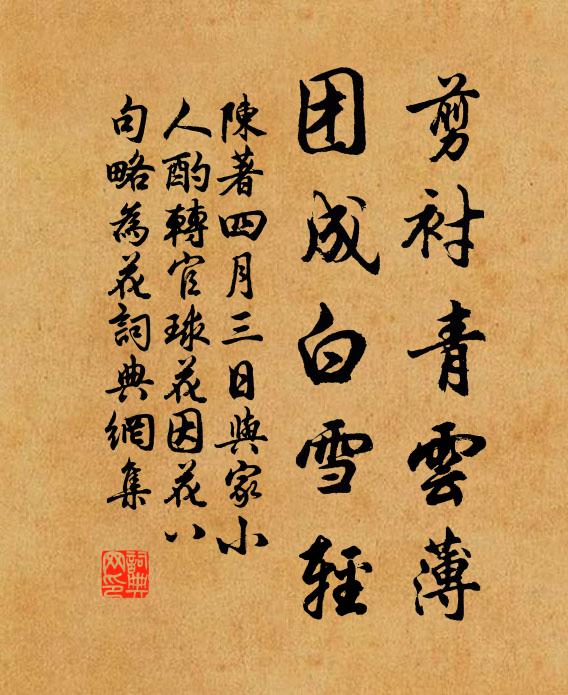 剪衬青雲薄
团成白雪輕
陳著四月三日與家小
人酌轉官球花因花八
句略為花詞典網集
詞典网印